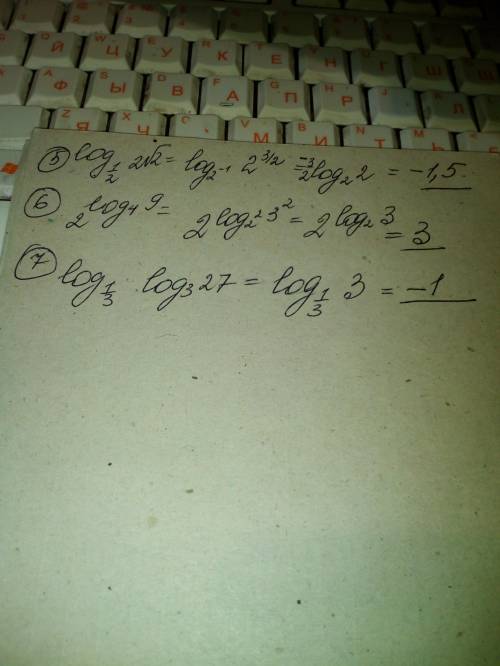 ⑤ log_{1/2} 2√2 = log_{2^{-1}} 2^{3/2} = -3/2 log_2 2 = -1,5
⑥ 2^{log_4 9} = 2^{log_{2^2} 3^2} = 2^{log_2 3} = 3
⑦ log_{1/3} · log_3 27 = log_{1/3} 3 = -1